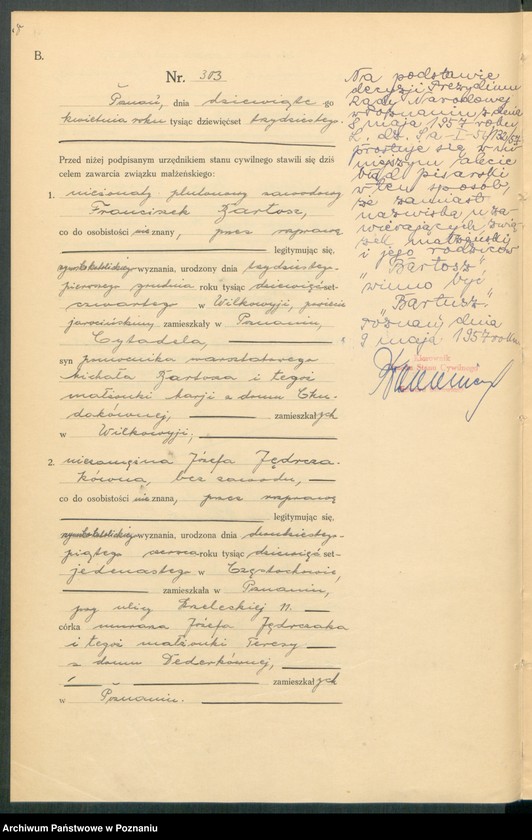 B.
Nr. 303
Poznań, dnia dziewiątego
kwietnia roku tysiąc dziewięćset trzydziestego.
Przed niżej podpisanym urzędnikiem stanu cywilnego stawili się dziś
celem zawarcia związku małżeńskiego:
1. nieżonaty plutonowy zawodowy
Franciszek Bartosz,
co do osobistości nieznany, przez rozprawę
legitymując się,
rzymskokatolickiego wyznania, urodzony dnia trzydziestego
pierwszego grudnia roku tysiąc dziewięćset-
czwartego w Wilkowyji, powiecie
jarocińskim, zamieszkały w Poznaniu,
Cytadela,
syn pomocnika warsztatowego
Michała Bartosza i tegoż
małżonki Marji z domu
zamieszkałych
w Wilkowyji;
2. niezamężna Józefa Jędrcza-
kówna, bez zawodu,
co do osobistości nieznana, przez rozprawę
legitymując się,
rzymskokatolickiego wyznania, urodzona dnia dwudziestego
piątego roku tysiąc dziewięćset-
jedenastego w Częstochowie,
zamieszkała w Poznaniu,
przy ulicy 11.
córka murarza Józefa Jędrczaka
i tegoż małżonki Teresy
z domu Dederkównej,
zamieszkałych
w Poznaniu.
Na podstawie
decyzji Prezydium
Rady Narodowej
w Poznaniu z dnia
8 maja 1957 roku
L. dz. Sa-I-
prostuje się w ni
niejszym akcie
błąd pisarski
w ten sposób,
że zamiast
nazwiska u za
wierających zwią-
zek małżeński
i jego rodziców
"Bartosz"
winno być
"Bartusz"
Poznań, dnia
9 maja 1957 roku
Kierownik
Stanu Cywilnego
Archiwum Państwowe w Poznaniu